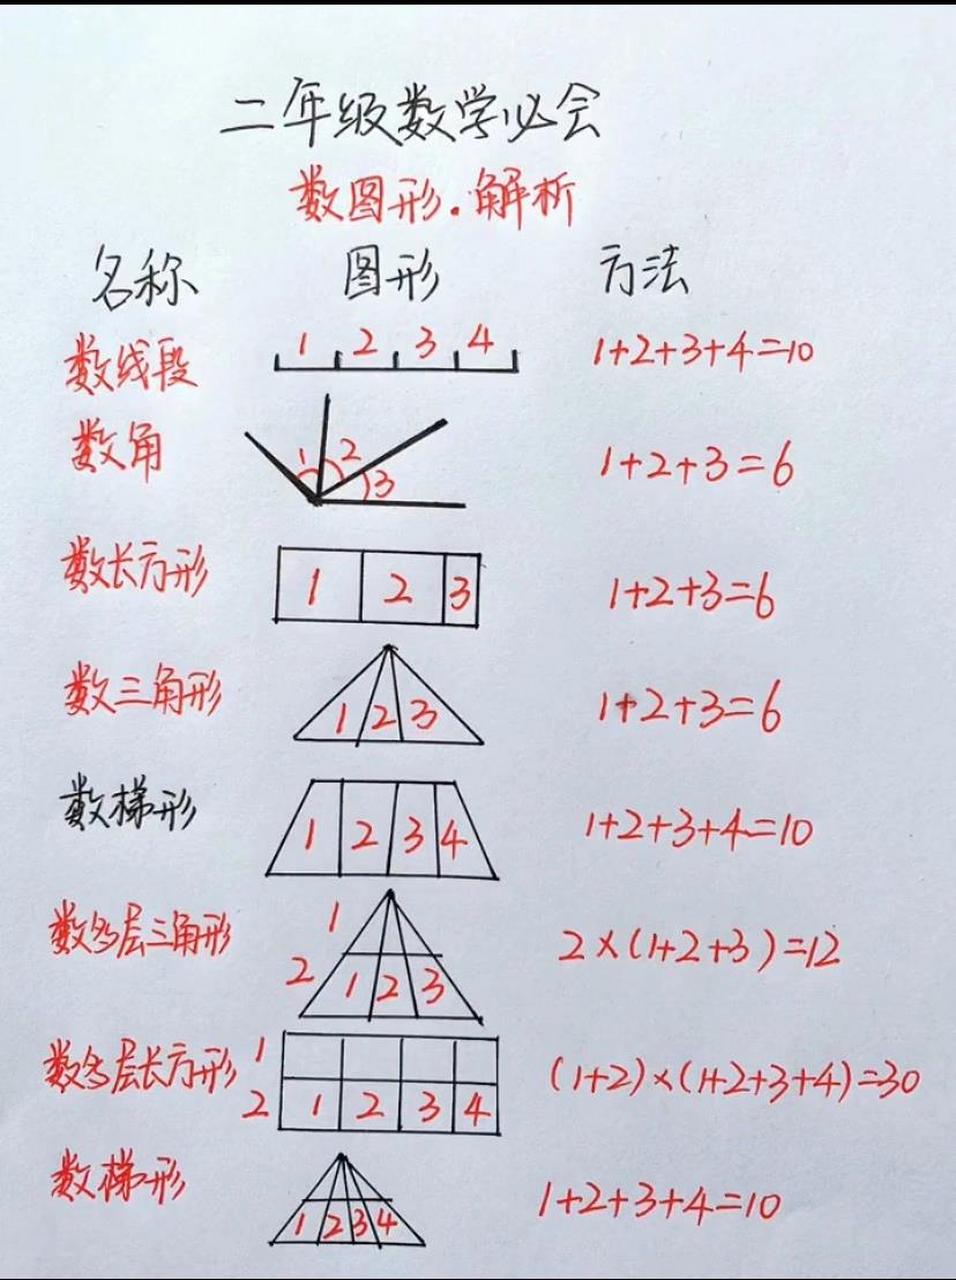 二年级数学必会
数图形.解析
名称 图形 方法
数线段 1 2 3 4 1+2+3+4=10
数角 1 2 3 1+2+3=6
数长方形 1 2 3 1+2+3=6
数三角形 1 2 3 1+2+3=6
数梯形 1 2 3 4 1+2+3+4=10
数多层三角形 1 2 1 2 3 2×(1+2+3)=12
数多层长方形 1 2 1 2 3 4 (1+2)×(1+2+3+4)=30
数梯形 1 2 3 4 1+2+3+4=10